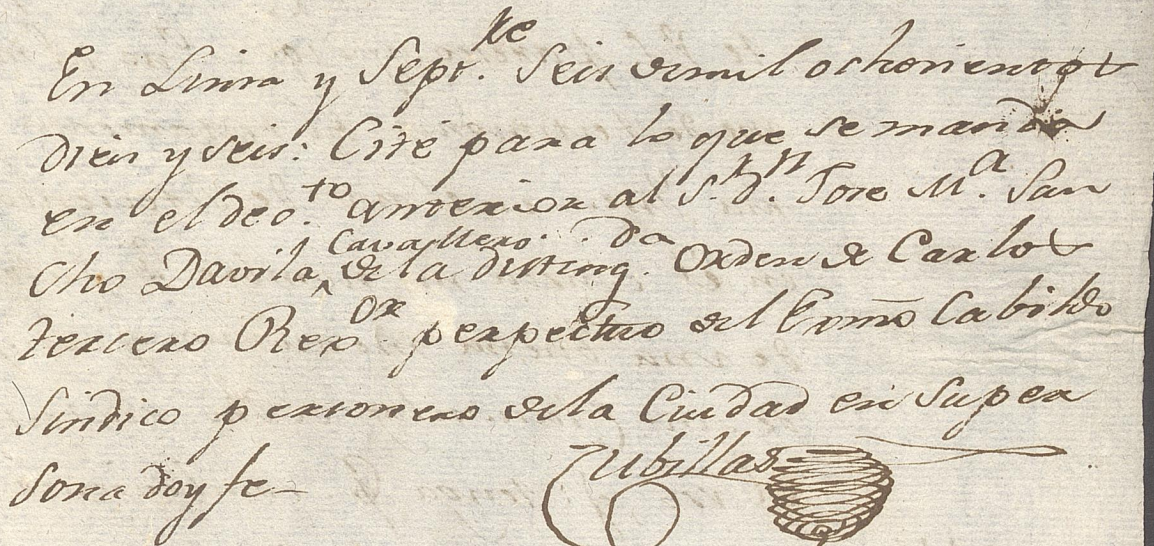 En Lima y Sept.re Seis de mil ochocientos
diez y seis: Cité para lo que se manda
en el dec.to anterior al S.r d.n Jose M.a San
cho Davila, Cavallero de la disting.da Orden de Carlos
tercero Rex.or perpetuo del Exmõ Cabildo
Sindico personero de la Ciudad en su per
sona doy fe_ Cubillas